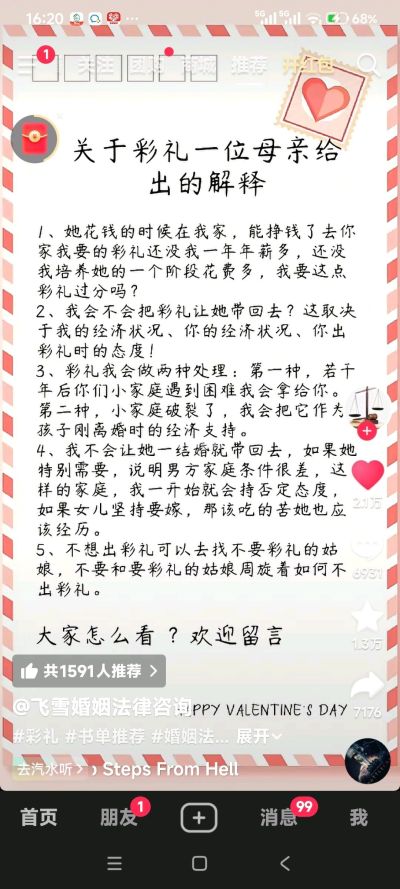 16:20
5G
5G
68%
1
关注
团购
商城
推荐
开红包
关于彩礼一位母亲给
出的解释
1、她花钱的时候在我家，能挣钱了去你
家我要的彩礼还没我一年年薪多，还没
我培养她的一个阶段花费多，我要这点
彩礼过分吗？
2、我会不会把彩礼让她带回去？这取决
于我的经济状况、你的经济状况、你出
彩礼时的态度！
3、彩礼我会做两种处理：第一种，若干
年后你们小家庭遇到困难我会拿给你。
第二种，小家庭破裂了，我会把它作为
孩子刚离婚时的经济支持。
4、我不会让她一结婚就带回去，如果她
特别需要，说明男方家庭条件很差，这
样的家庭，我一开始就会持否定态度，
如果女儿坚持要嫁，那该吃的苦她也应
该经历。
5、不想出彩礼可以去找不要彩礼的姑
娘，不要和要彩礼的姑娘周旋着如何不
出彩礼。
大家怎么看？欢迎留言
2.1万
6931
1.3万
7176
共1591人推荐
@飞雪婚姻法律咨询
HAPPY VALENTINE'S DAY
#彩礼 #书单推荐 #婚姻法... 展开
去汽水听
Steps From Hell
首页
朋友
1
消息
99
我